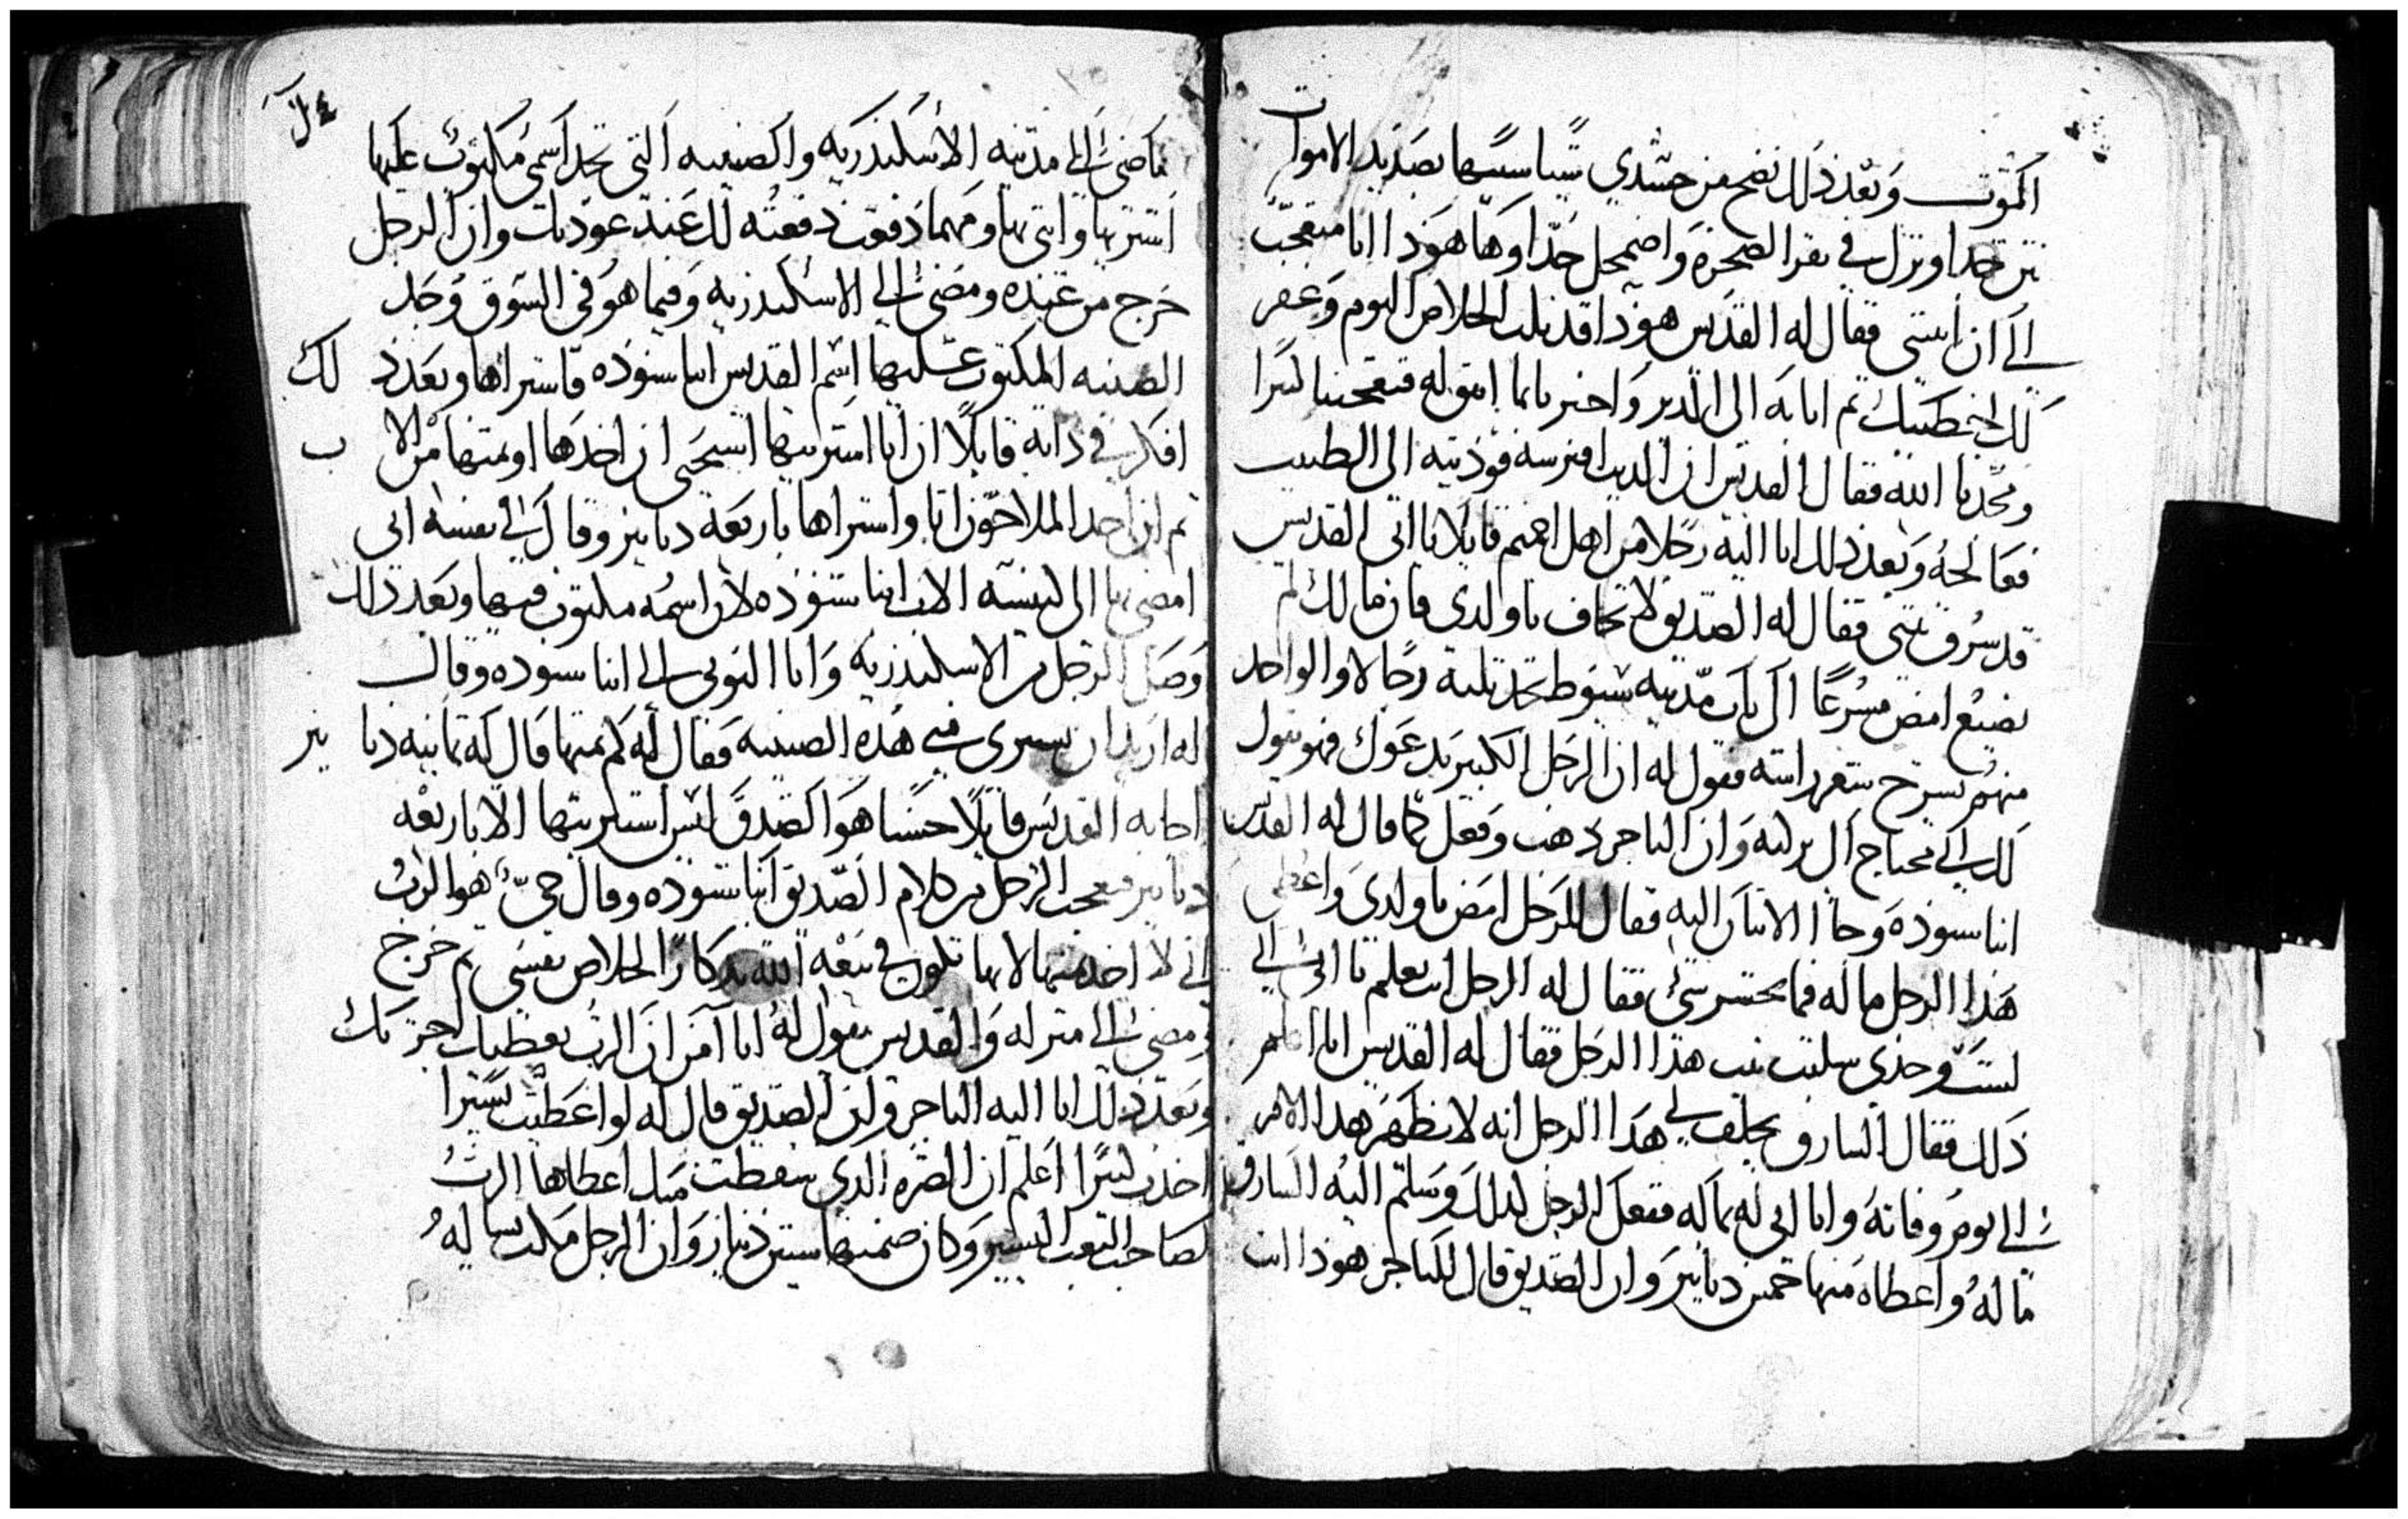 الموت وبعد ذلك نضح من جسدي شيا شبيها بصديد الاموات
نتن جدا ونزل في نقر الصخره واضمحل جدا وها هوذا انا متعجب
الى ان ابستى فقال له القديس هوذا قد نلت الخلاص اليوم وغفر
لك خطيتك ثم اتا به الى الدير واخبرنا بما اتفق له فتعجبنا كثيرا
ومجدنا الله فقال القديس ان الديب افترسه فوديته الى الطبيب
فعالجه وبعد ذلك اتا اليه رجلا من اهل اخميم قايلا يا ابي القديس
قد سرق بيتي فقال له الصديق لا تخاف يا ولدي فان مالك لم
يضيع امض مسرعا الى باب مدينه سيوط تجد ثلثه رجالا والواحد
منهم يسرح شعر راسه فقول له ان الرجل الكبير يدعوك فهو يقول
لك اني محتاج الى بركته وان التاجر ذهب وفعل كما قال له القديس
انبا شنوده وجا الانسان اليه فقال للرجل امض يا ولدي واعطي
هذا الرجل ماله فما تخسر شي فقال له الرجل انت تعلم يا ابي اني
لست وحدي سلبت بيت هذا الرجل فقال له القديس انا اعلم
ذلك فقال السارق يحلف لي هذا الرجل انه لا يظهر هذا الامر
الى يوم وفاته وانا اتي له بماله ففعل الرجل كذلك وسلم اليه السارق
ماله واعطاه منها خمس دنانير وان الصديق قال للتاجر هوذا انت
ماضي الى مدينه الاسكندريه والصينيه التي تجد اسمي مكتوب عليها
اشتريها واتي بها ومهما دفعت دفعته لك عند عودتك وان الرجل
خرج من عنده ومضى الى الاسكندريه وفيما هو في السوق وجد
الصينيه المكتوب عليها اسم القديس انبا شنوده فاشتراها وبعد ذلك
افكر في ذاته قايلا ان انا اشتريتها استحي ان اخذها او ثمنها من الاب
ثم ان احد الملاحون اتا واشتراها باربعه دنانير وقال في نفسه اني
امضي بها الى كنيسه الاب انبا شنوده لان اسمه مكتوب فيها وبعد ذلك
وصل الرجل من الاسكندريه واتا النوتي الى انبا شنوده وقال
له اريد ان تشتري مني هذه الصينيه فقال له كم ثمنها قال له ثمانيه دنانير
اجابه القديس قايلا حسنا هو الصدق ليس اشتريتها الا باربعه
دنانير فتعجب الرجل من كلام الصديق انبا شنوده وقال حي هو الرب
اني لا اخذ ثمنها لانها تكون في بيعه الله تدكارا لخلاص نفسي ثم خرج
ومضى الى منزله والقديس يقول له انا اامن ان الرب يعطيك اجرتك
وبعد ذلك اتا اليه التاجر ولكن الصديق قال له لو اعطيت يسيرا
اخذت كثيرا اعلم ان الصره الذي سقطت منك اعطاها الرب
لصاحب التعب اليسير وكان ضمنها ستين دينار وان الرجل مكث ساله